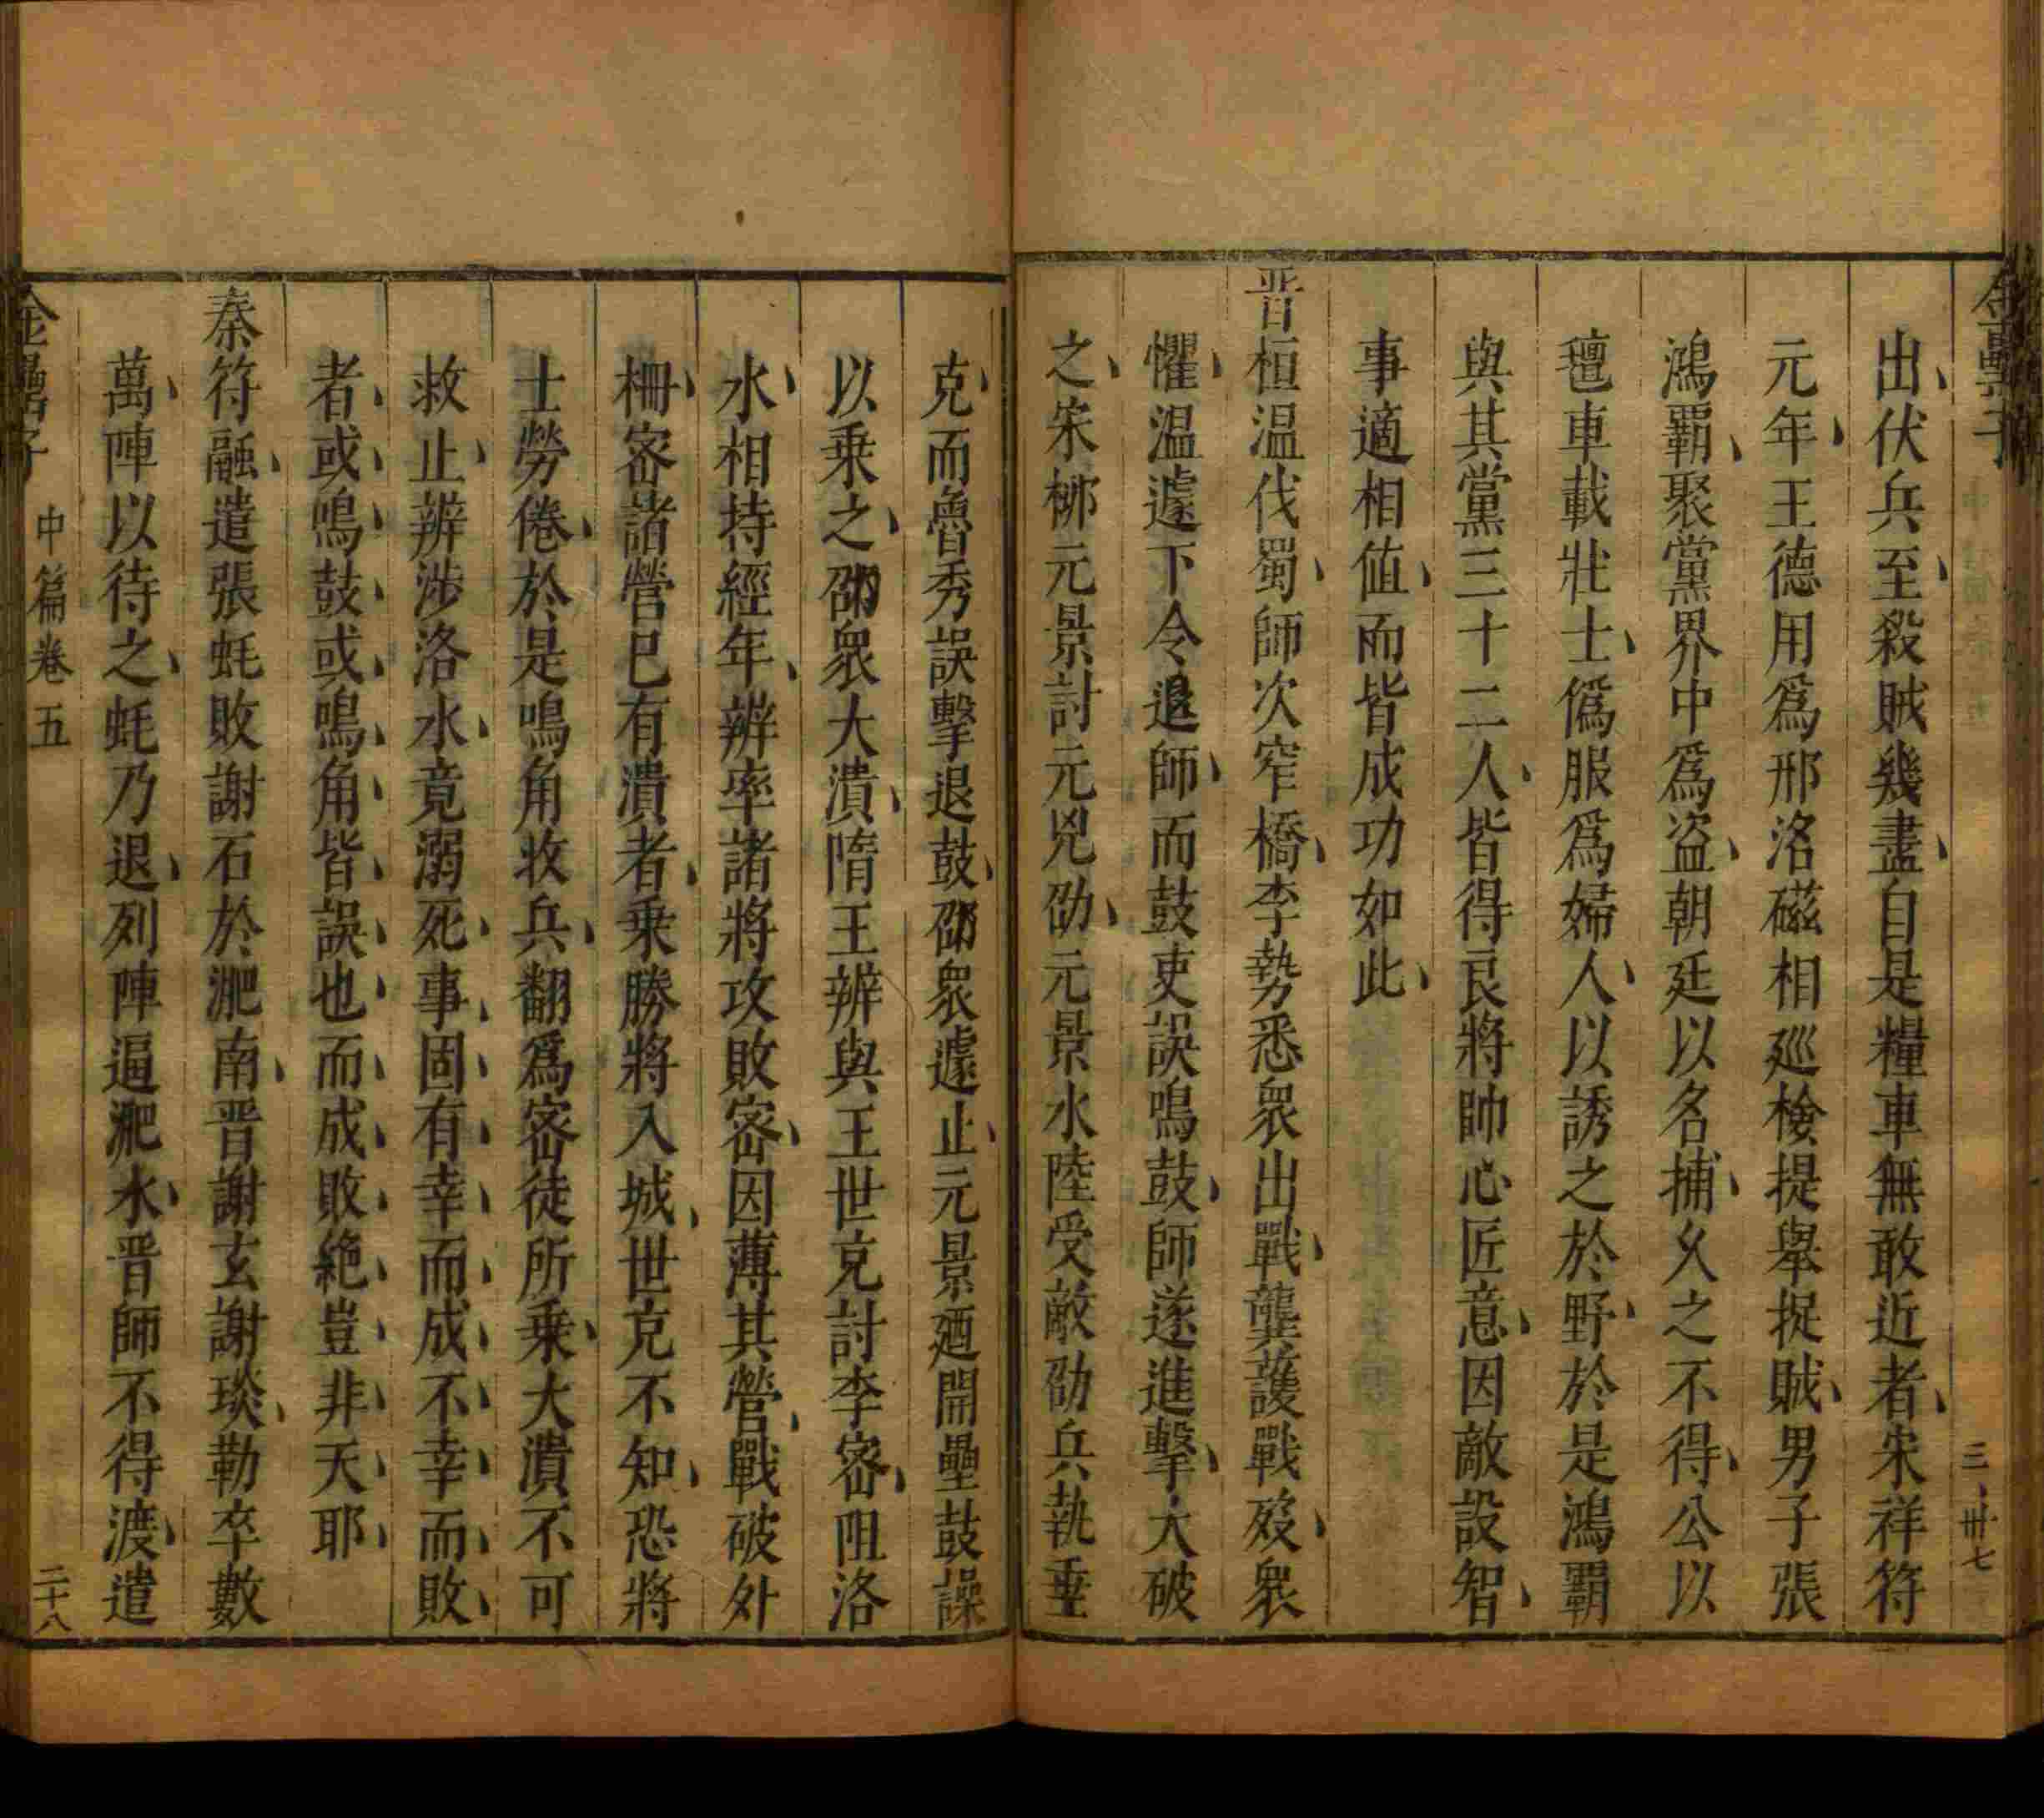 出伏兵至殺賊幾盡自是糧車無敢近者宋祥符
元年王德用爲邢洛磁相廵檢提舉捉賊男子張
鴻覇聚黨界中爲盗朝廷以名捕久之不得公以
氊車載壯士僞服爲婦人以誘之於野於是鴻覇
與其黨三十二人皆得良將帥心匠意因敵設智
事適相值而皆成功如此
晋桓温伐蜀師次窄橋李勢悉衆出戰龔護戰歿衆
懼温遽下令退師而鼓吏誤鳴鼓師遂進擊大破
之宋柳元景討元兇劭元景水陸受敵劭兵執垂
克而魯秀誤擊退鼓劭衆遽止元景廼開壘鼓譟
以乗之劭衆大潰隋王辨與王世克討李宻阻洛
水相持經年辨率諸將攻敗宻因薄其營戰破外
柵宻諸營巳有潰者乗勝將入城世克不知恐將
士勞倦於是鳴角收兵翻爲宻徒所乗大潰不可
救止辨涉洛水竟溺死事固有幸而成不幸而敗
者或鳴鼓或鳴角皆誤也而成敗絶豈非天耶
秦符融遣張蚝敗謝石於淝南晋謝玄謝琰勒卒數
萬陣以待之蚝乃退列陣逼淝水晋師不得渡遣
金罍子
中篇卷五
二十八